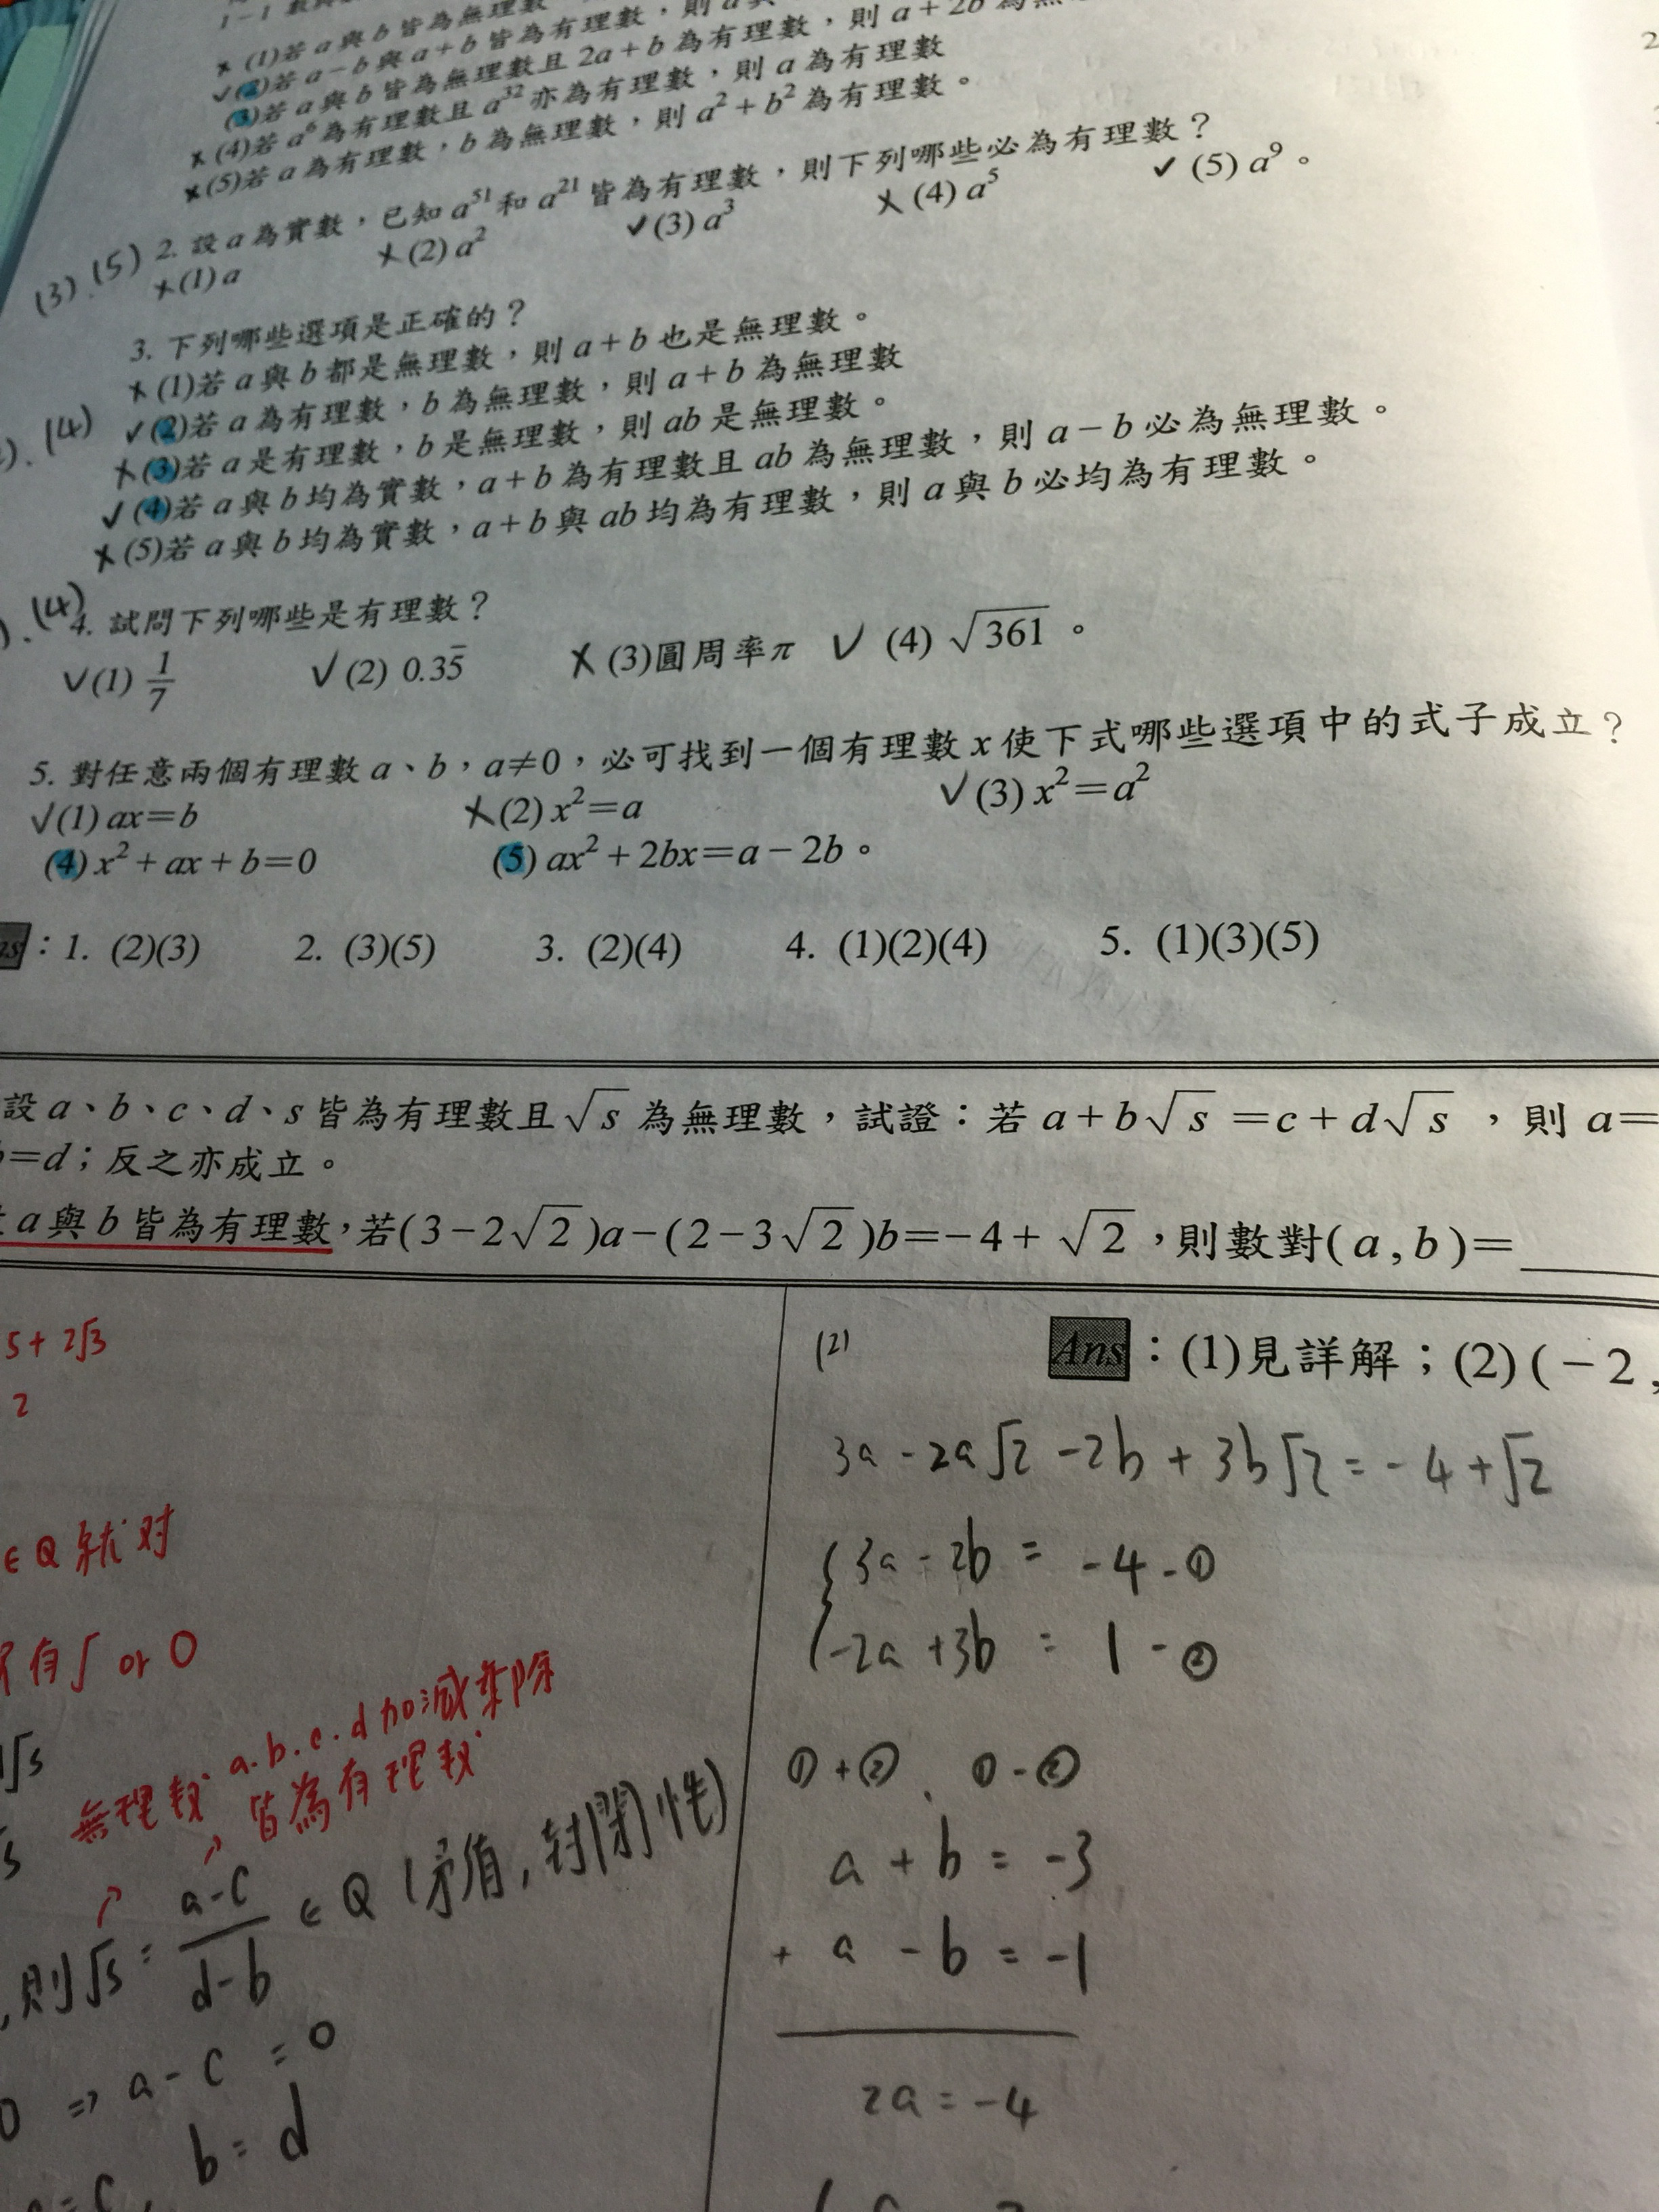 1-1
× (1)若 a 與 b 皆為無理數
✓ (2)若 a-b 與 a+b 皆為有理數,則 a
(3)若 a 與 b 皆為無理數且 2a+b 為有理數,則 a+2b 為無
× (4)若 a⁶ 為有理數且 a³² 亦為有理數,則 a 為有理數
× (5)若 a 為有理數,b 為無理數,則 a²+b² 為有理數。
(3).(5) 2. 設 a 為實數,已知 a⁵¹ 和 a²¹ 皆為有理數,則下列哪些必為有理數?
×(1) a ×(2) a² ✓(3) a³ ×(4) a⁵ ✓(5) a⁹。
3. 下列哪些選項是正確的?
×(1)若 a 與 b 都是無理數,則 a+b 也是無理數。
✓(2)若 a 為有理數,b 為無理數,則 a+b 為無理數
). (4)
×(3)若 a 是有理數,b 是無理數,則 ab 是無理數。
✓(4)若 a 與 b 均為實數,a+b 為有理數且 ab 為無理數,則 a-b 必為無理數。
×(5)若 a 與 b 均為實數,a+b 與 ab 均為有理數,則 a 與 b 必均為有理數。
). (4) 4. 試問下列哪些是有理數?
✓(1) 1/7 ✓(2) 0.35̅ ×(3)圓周率π ✓(4) √361。
5. 對任意兩個有理數 a、b,a≠0,必可找到一個有理數 x 使下式哪些選項中的式子成立?
✓(1) ax=b ×(2) x²=a ✓(3) x²=a²
(4) x²+ax+b=0 (5) ax²+2bx=a-2b。
ns:1. (2)(3) 2. (3)(5) 3. (2)(4) 4. (1)(2)(4) 5. (1)(3)(5)
設 a、b、c、d、s 皆為有理數且√s 為無理數,試證:若 a+b√s=c+d√s,則 a=
b=d;反之亦成立。
a 與 b 皆為有理數,若(3-2√2)a-(2-3√2)b=-4+√2,則數對(a,b)=
5+2√3
2
∈Q 就对
有√ or 0
√s
s
無理数 a.b.c.d 加減乘除
皆為有理数
,則√s = (a-c)/(d-b) ∈ Q (矛盾,封閉性)
0 ⇒ a-c = 0
b = d
=c,
(2)
Ans:(1)見詳解;(2)(-2,
3a-2a√2-2b+3b√2=-4+√2
{3a-2b = -4-①
-2a+3b = 1-②
①+②、①-②
a+b=-3
+ a-b=-1
2a=-4